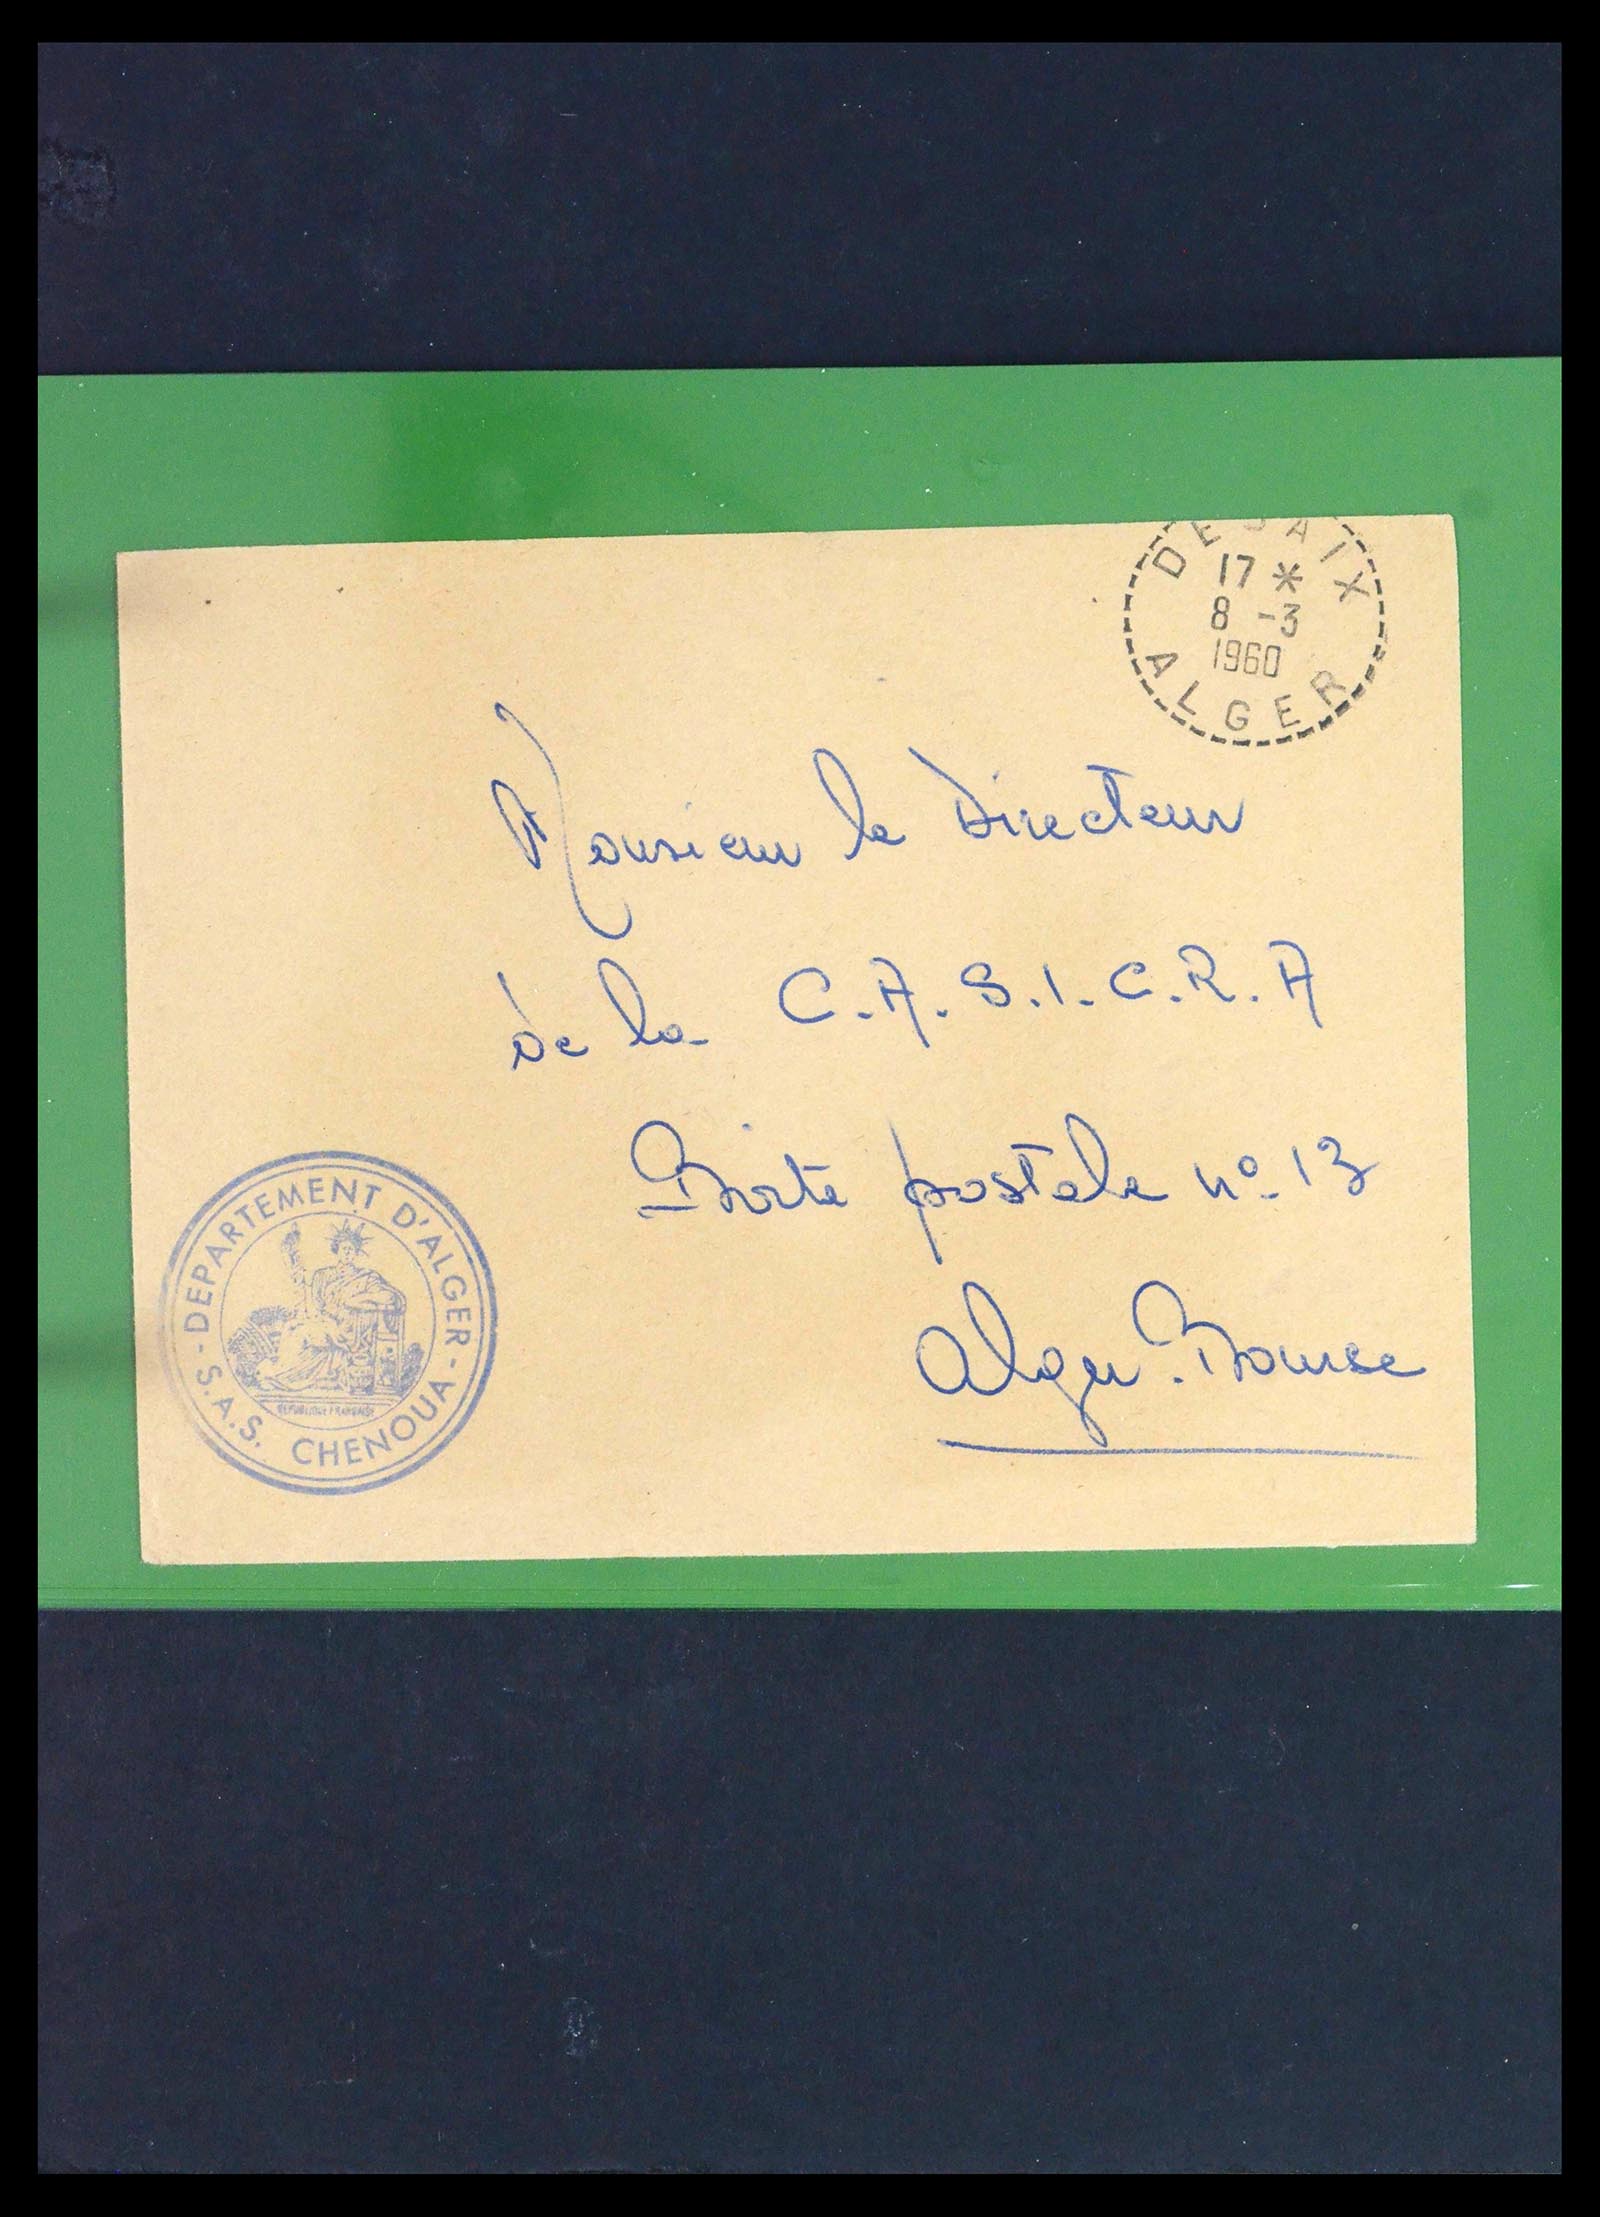 DESAIX
17 *
8 -3
1960
ALGER
Monsieur le Directeur
de la C.A.S.I.C.R.A
Boite postale nº 13
Alger-Bourse
- DEPARTEMENT D'ALGER -
REPUBLIQUE FRANÇAISE
S.A.S. CHENOUA